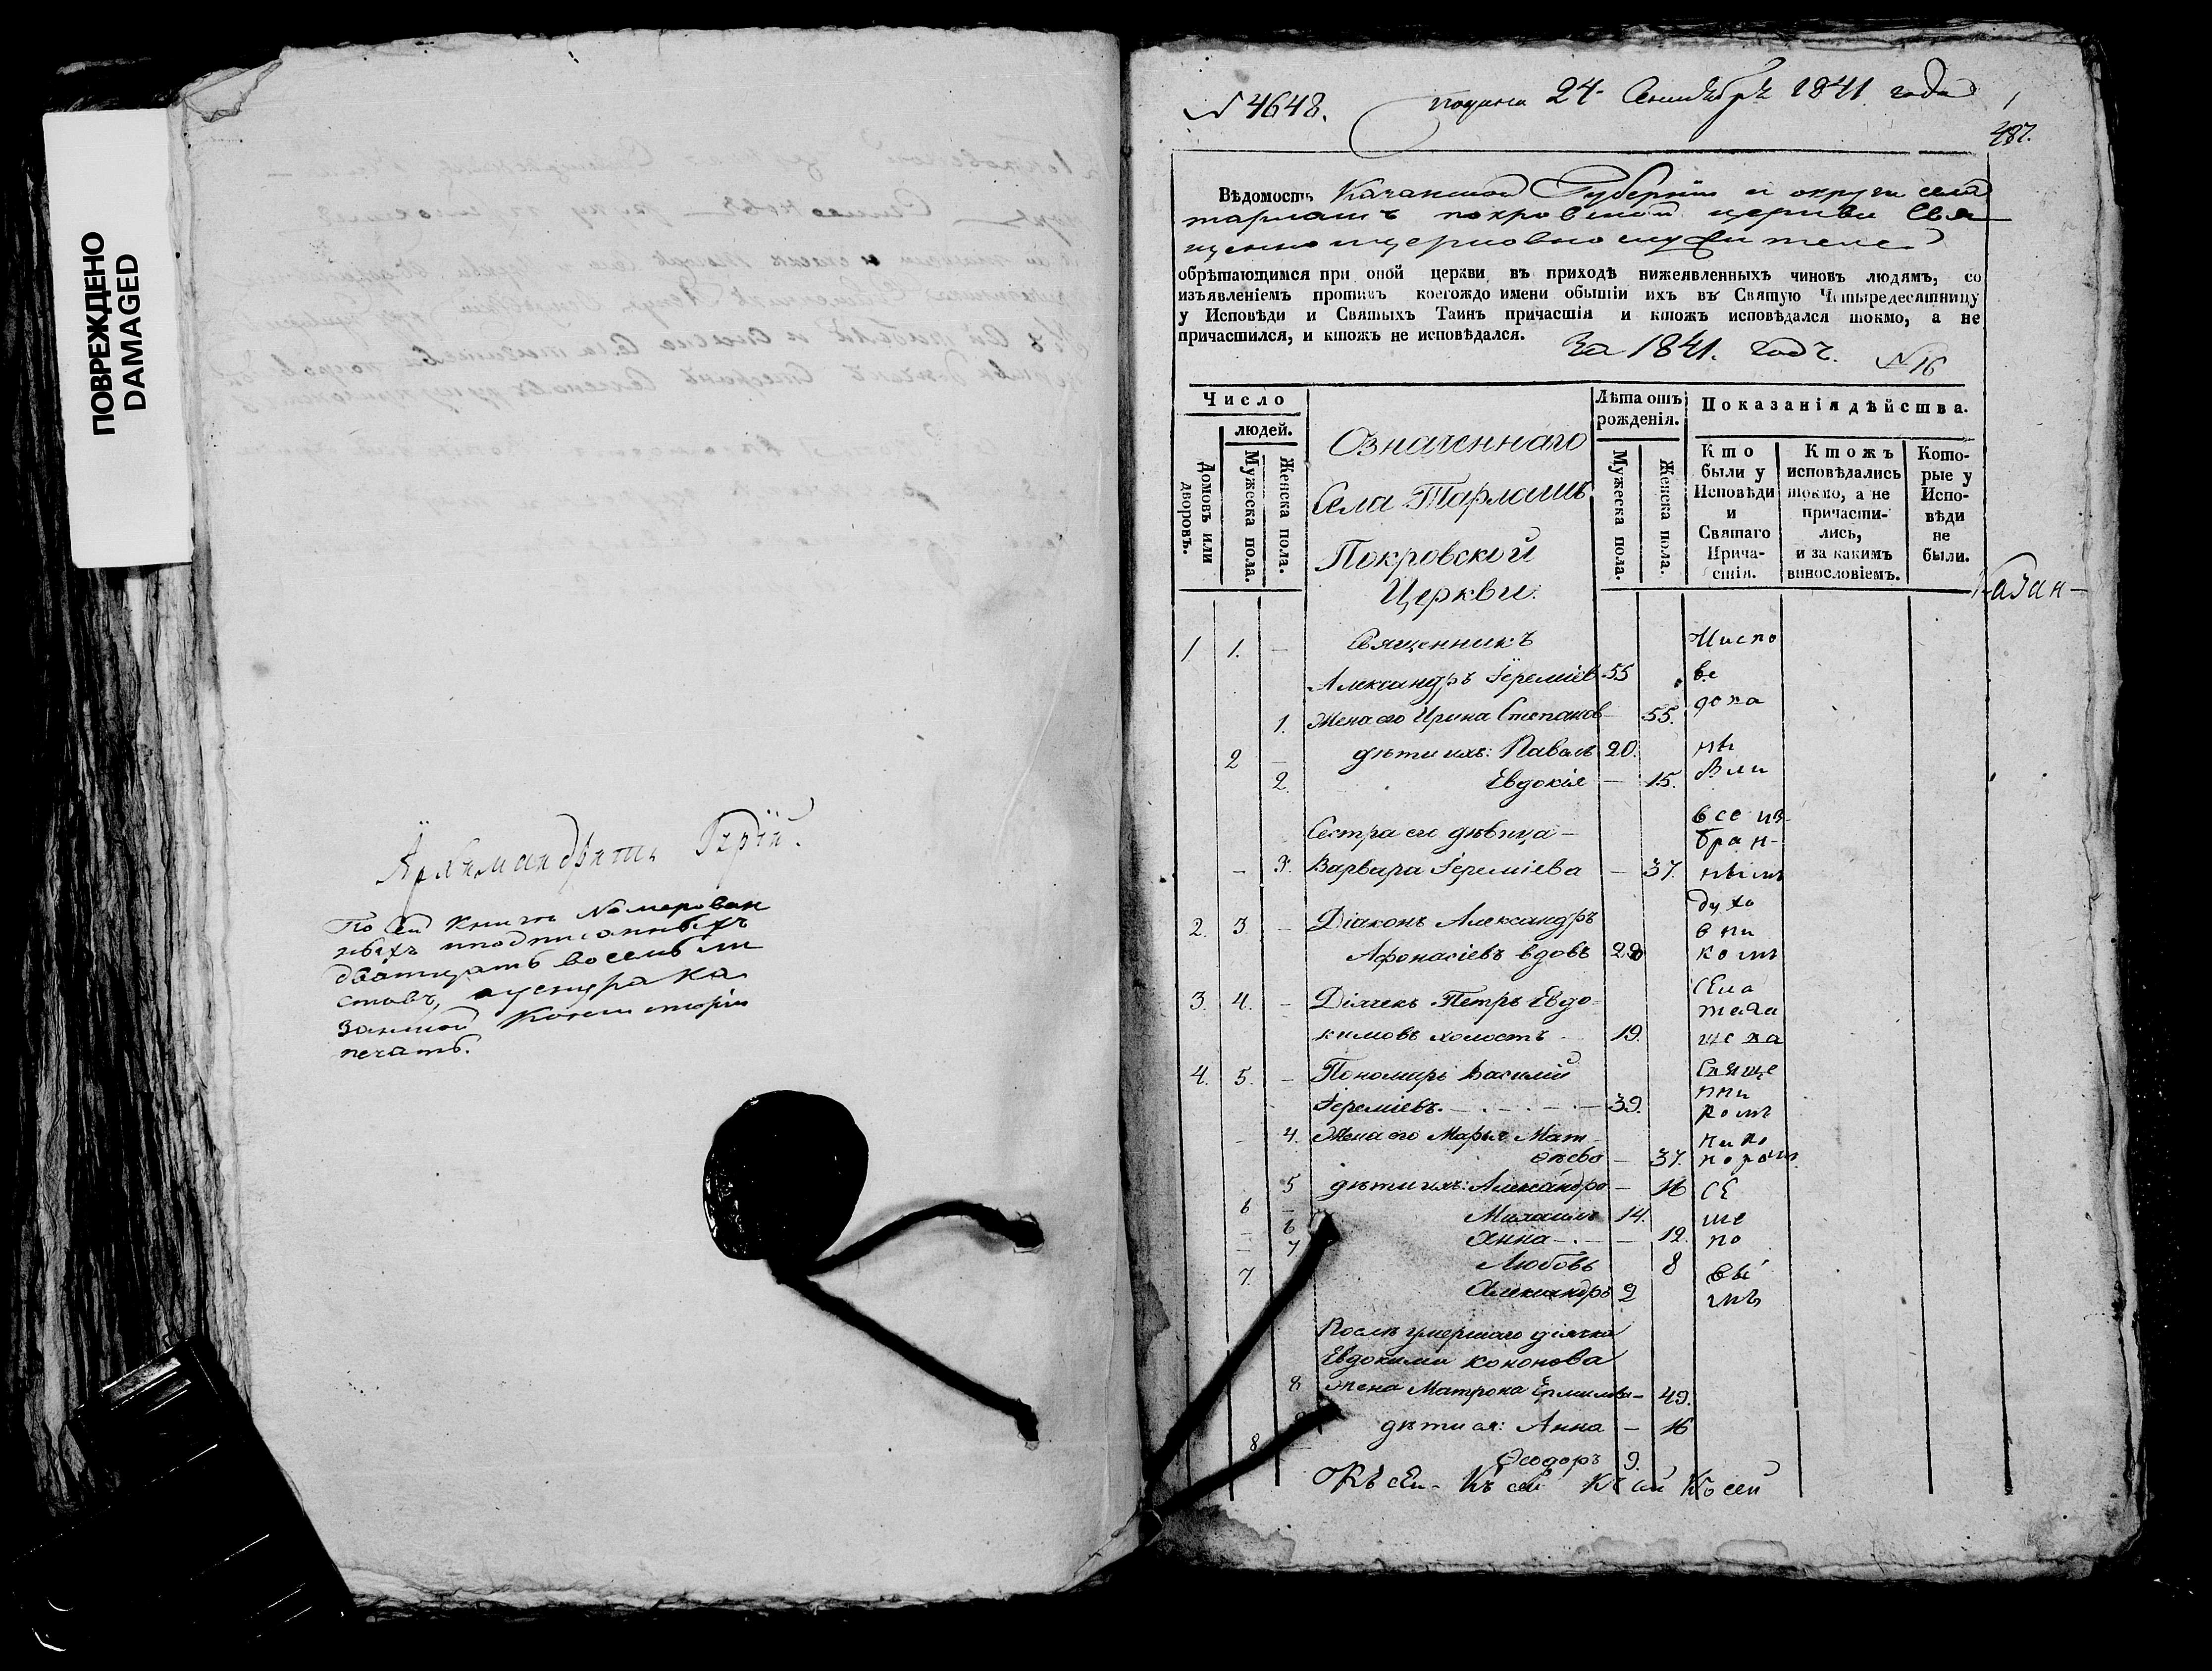 ПОВРЕЖДЕНО
DAMAGED
Архимандритъ Гурїй.
По сей книгѣ Номерован
ныхъ и подписанныхъ
дватцать восемь ли
стовъ,
занской Консисторіи
печать.
N 4648.
подана 24 Сентября 1841 года
1
487.
Вѣдомость Казанской Губерніи и округи села
тарлашъ покровской церкви Свя
щенноцерковнослужителей
обрѣтающимся при оной церкви въ приходѣ нижеявленныхъ чиновъ людямъ, со
изъявленіемъ противъ коегождо имени обытіи ихъ въ Святую Четыредесятницу
у Исповѣди и Святыхъ Таинъ причастія и ктожъ исповѣдался токмо, а не
причастился, и ктожъ не исповѣдался.
За 1841. годъ. N 16
Число
людей.
Домовъ или дворовъ.
Мужеска пола.
Женска пола.
Означеннаго
Села Тарлашъ
Покровской
Церкви.
Лѣта отъ рожденія.
Мужеска пола.
Женска пола.
Показанія дѣйства.
Кто были у Исповѣди и Святаго Прича-стія.
Ктожъ исповѣдались токмо, а не причасти-лись, и за какимъ винословіемъ.
Кото-рые у Испо-вѣди не были.
Казан-
1 1. — Священникъ
Александръ Іереміев 55
1. Жена его Ирина Степанов 55.
2 — дѣти ихъ: Павелъ 20.
2. Евдокія — 15.
Сестра его дѣвица —
— 3. Варвара Іереміева — 37.
2. 3. — Діаконъ Александръ
Афонасіевъ вдовъ 29
3. 4. — Дїячекъ Петръ Евдо
кимовъ холостъ 19.
4. 5. — Пономарь Василій
Іереміевъ. 39.
— 4. Жена его Марья Мат
ѳѣева — 37.
5 дѣти ихъ: Александра — 16
6 — Михаилъ 14.
— 6 Анна — 12.
— 7 Любовь 8
7. Александръ 2
Послѣ умершаго дїячка
Евдокима Кононова
8 жена Матрона Ермилова — 49.
дѣти ея: Анна — 16
8 — Ѳеодоръ 9.
все из-
бран-
нымъ
духо
вни
комъ
Къ сей Къ сей Къ сей Ко сей